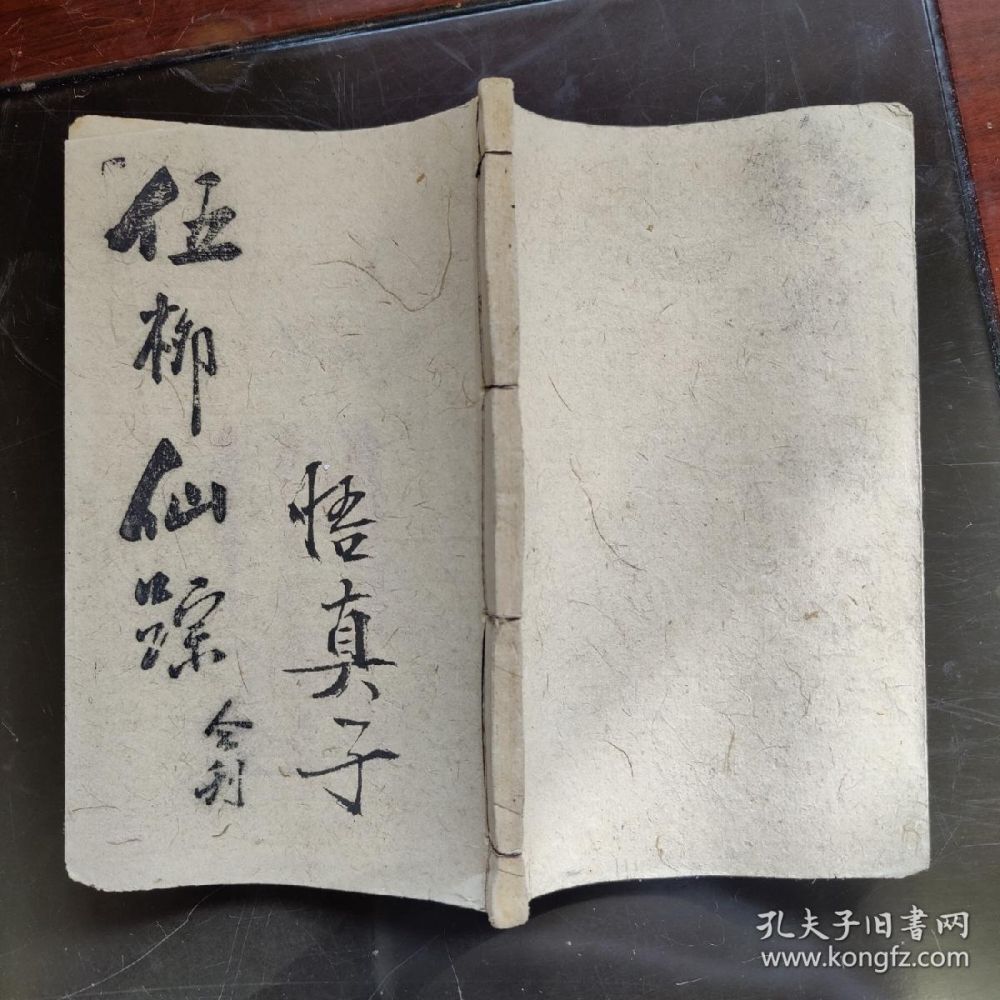 伍柳仙踪
合刊
悟真子
孔夫子旧書网
www.kongfz.com